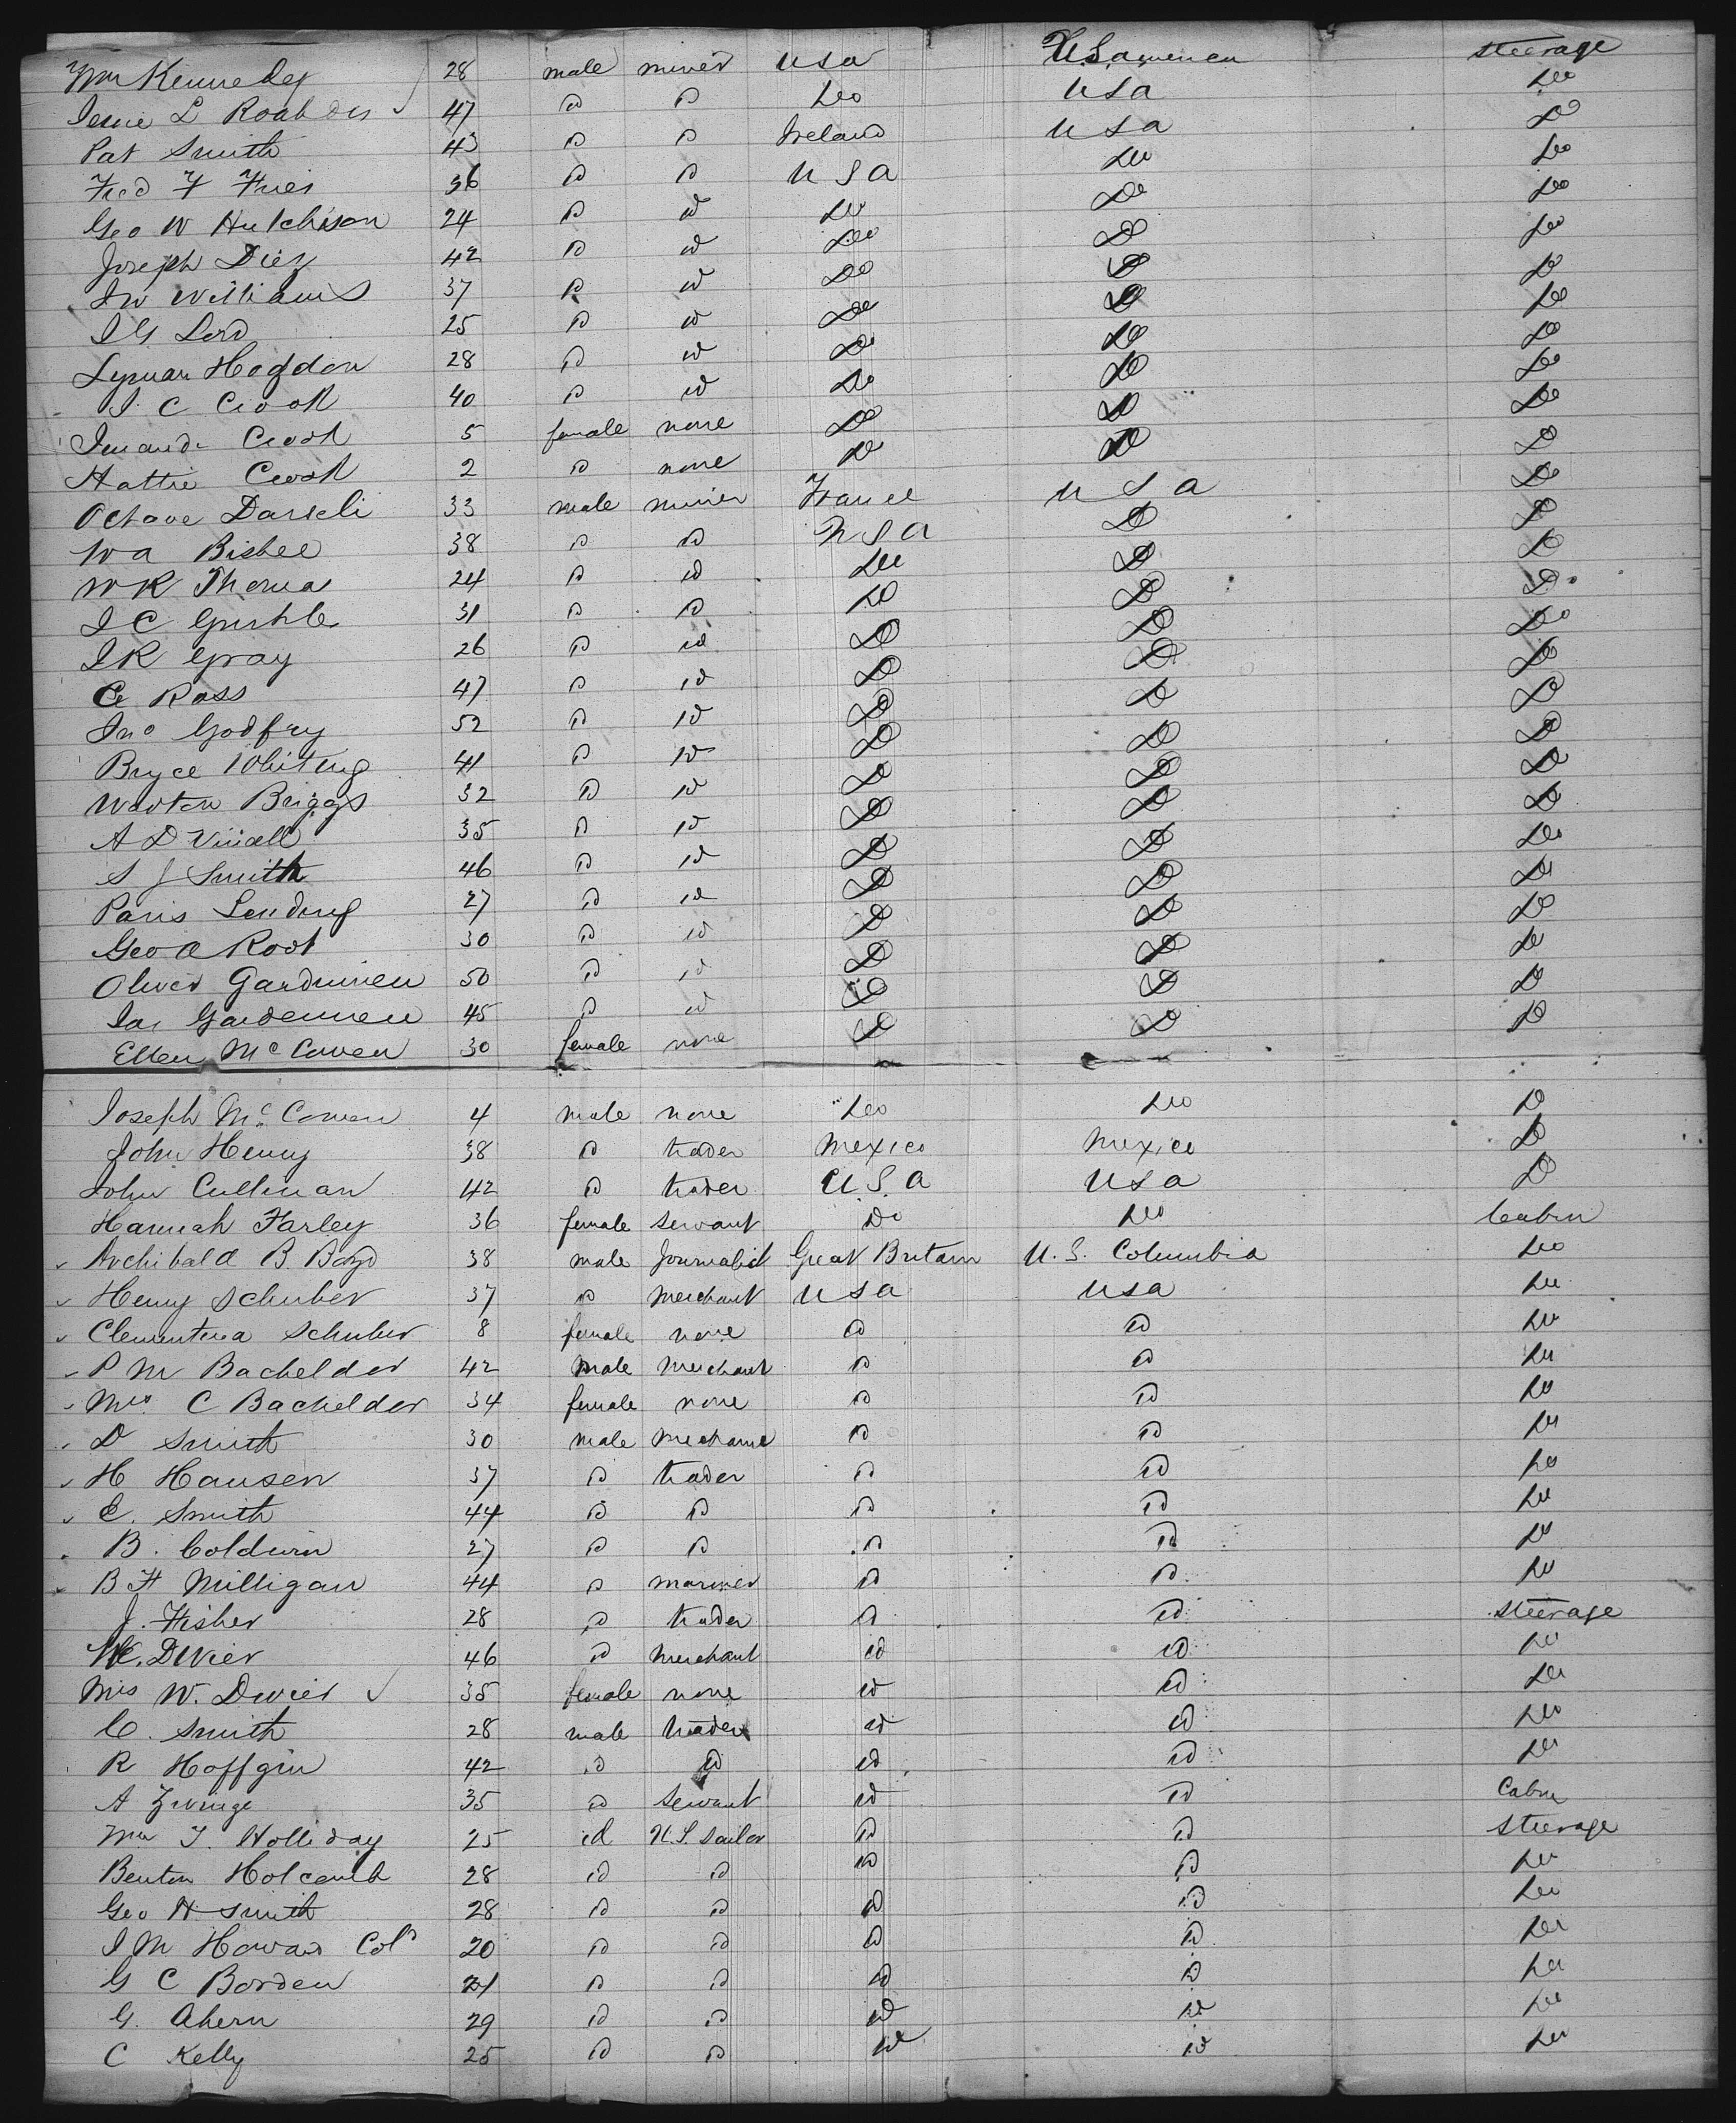 Wm Kennedey 28 male miner USA U.S. America steerage
L 47 do do Do USA Do
Pat Smith 43 do do Ireland USA Do
Fred F Fries 36 do do USA Do Do
Geo W Hutchison 24 do do Do Do Do
Joseph Diez 42 do do Do Do Do
Williams 37 do do Do Do Do
Lord 25 do do Do Do Do
Lyman Hogdon 28 do do Do Do Do
J. C Crook 40 do do Do Do Do
Crook 5 female none Do Do Do
Hattie Crook 2 do none Do Do Do
Octave Darseli 33 male miner France USA Do
W A Bisbee 38 do do USA Do Do
W R Thomas 24 do do Do Do Do
J C 31 do do Do Do Do
J R Gray 26 do do Do Do Do
C Ross 47 do do Do Do Do
Jno Godfry 52 do do Do Do Do
Bryce Whiting 41 do do Do Do Do
Briggs 32 do do Do Do Do
A D Vinall 35 do do Do Do Do
S J Smith 46 do do Do Do Do
Paris 27 do do Do Do Do
Geo A Root 30 do do Do Do Do
Oliver 50 do do Do Do Do
Jas 45 do do Do Do Do
Ellen McCowen 30 female none Do Do Do
Joseph McCowen 4 male none Do Do Do
John Henry 38 do trader Mexico Mexico Do
John Cullinan 42 do trader U.S.A USA Do
Hannah Farley 36 female servant Do Do Cabin
Archibald B. Boyd 38 male Journalist Great Britain U.S. Columbia Do
Henry Schuber 37 do Merchant USA USA Do
Clementina Schuber 8 female none do do Do
P M Bachelder 42 male merchant do do Do
Mrs C Bachelder 34 female none do do Do
D Smith 30 male mechanic do do Do
H Hansen 37 do trader do do Do
E. Smith 44 do do do do Do
B. Coldwin 27 do do do do Do
B F Milligan 44 do mariner do do Do
J. Fisher 28 do trader do do steerage
W. Dwier 46 do merchant do do Do
Mrs W. Dwier 35 female none do do Do
C. Smith 28 male trader do do Do
R Hoffgin 42 do do do do Do
A Zwinge 35 do servant do do Cabin
Wm T. Holliday 25 id U.S. sailor do do steerage
Benton Holcomb 28 id do do do Do
Geo H Smith 28 do do do do Do
J M Howard Cold 20 do do do do Do
G C Borden 21 do do do do Do
G. Ahern 29 id do do do Do
C Kelly 25 id do do do Do